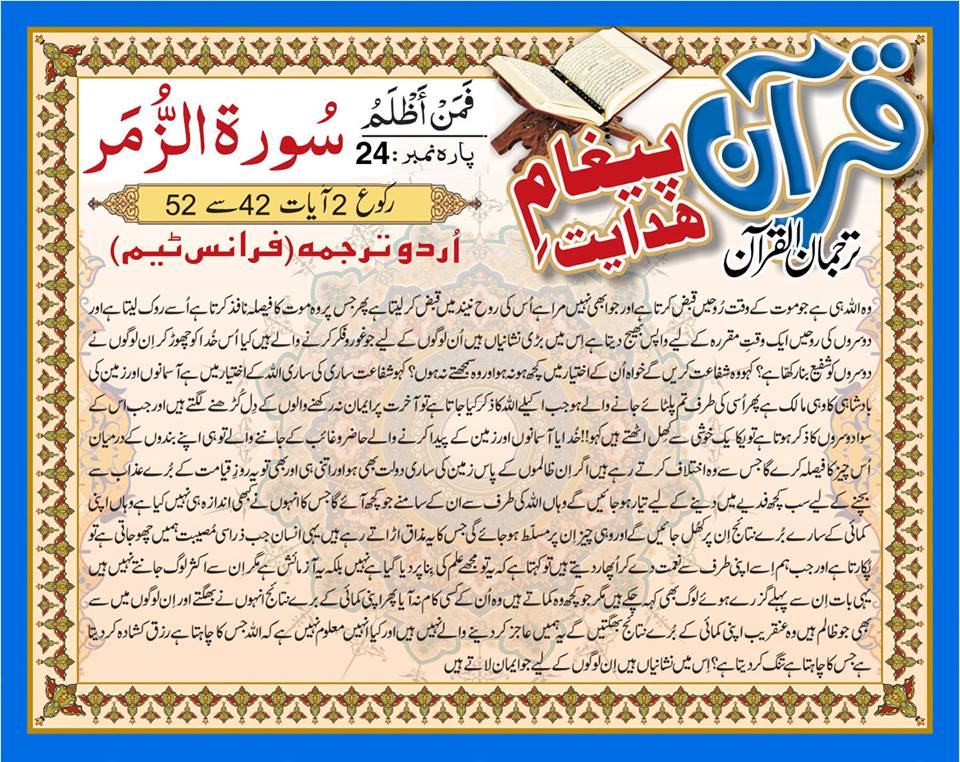 قرآن
پیغامِ
ھدایت
ترجمان القرآن
فَمَنْ أَظْلَمُ
پارہ نمبر: 24
سُورۃ الزُّمَر
رکوع 2 آیات 42 سے 52
اُردو ترجمہ (فرانس ٹیم)
وہ اللہ ہی ہے جو موت کے وقت رُوحیں قبض کرتا ہے اور جو ابھی نہیں مرا ہے اُس کی روح نیند میں قبض کر لیتا ہے پھر جس پر وہ موت کا فیصلہ نافذ کرتا ہے اُسے روک لیتا ہے اور
دوسروں کی روحیں ایک وقتِ مقررہ کے لیے واپس بھیج دیتا ہے اِس میں بڑی نشانیاں ہیں اُن لوگوں کے لیے جو غور و فکر کرنے والے ہیں کیا اُس خُدا کو چھوڑ کر اِن لوگوں نے
دوسروں کو شفیع بنا رکھا ہے؟ کہو وہ شفاعت کریں گے خواہ اُن کے اختیار میں کچھ ہو نہ ہو اور وہ سمجھتے نہ ہوں؟ کہو شفاعت ساری کی ساری اللہ کے اختیار میں ہے آسمانوں اور زمین کی
بادشاہی کا وہی مالک ہے پھر اُسی کی طرف تم پلٹائے جانے والے ہو جب اکیلے اللہ کا ذکر کیا جاتا ہے تو آخرت پر ایمان نہ رکھنے والوں کے دِل گڑھنے لگتے ہیں اور جب اس کے
سوا دوسروں کا ذکر ہوتا ہے تو یکایک خوشی سے کھل اٹھتے ہیں کہو!! خُدایا آسمانوں اور زمین کے پیدا کرنے والے حاضر و غائب کے جاننے والے تو ہی اپنے بندوں کے درمیان
اُس چیز کا فیصلہ کرے گا جس سے وہ اختلاف کرتے رہے ہیں اگر ان ظالموں کے پاس زمین کی ساری دولت بھی ہو اور اتنی ہی اور بھی تو یہ روزِ قیامت کے بُرے عذاب سے
بچنے کے لیے سب کچھ فدیے میں دینے کے لیے تیار ہو جائیں گے وہاں اللہ کی طرف سے ان کے سامنے جو کچھ آئے گا جس کا انہوں نے کبھی اندازہ ہی نہیں کیا ہے وہاں اپنی
کمائی کے سارے بُرے نتائج اِن پر کھُل جائیں گے اور وہی چیز اِن پر مسلّط ہو جائے گی جس کا یہ مذاق اڑاتے رہے ہیں یہی انسان جب ذرا سی مُصیبت ہمیں چھو جاتی ہے تو
پُکارتا ہے اور جب ہم اسے اپنی طرف سے نعمت دے کر اُپھار دیتے ہیں تو کہتا ہے کہ یہ تو مجھے علم کی بنا پر دیا گیا ہے نہیں بلکہ یہ آزمائش ہے مگر اِن سے اکثر لوگ جانتے نہیں ہیں
یہی بات اِن سے پہلے گزرے ہوئے لوگ بھی کہہ چکے ہیں مگر جو کچھ وہ کماتے ہیں وہ اُن کے کسی کام نہ آیا پھر اپنی کمائی کے بُرے نتائج انہوں نے بھگتے اور اِن لوگوں میں سے
بھی جو ظالم ہیں وہ عنقریب اپنی کمائی کے بُرے نتائج بھگتیں گے یہ ہمیں عاجز کر دینے والے نہیں ہیں اور کیا انہیں معلوم نہیں ہے کہ اللہ جس کا چاہتا ہے رزق کشادہ کر دیتا
ہے جس کا چاہتا ہے تنگ کر دیتا ہے؟ اِس میں نشانیاں ہیں اِن لوگوں کے لیے جو ایمان لاتے ہیں